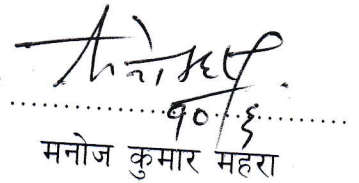 १०/६
मनोज कुमार महरा